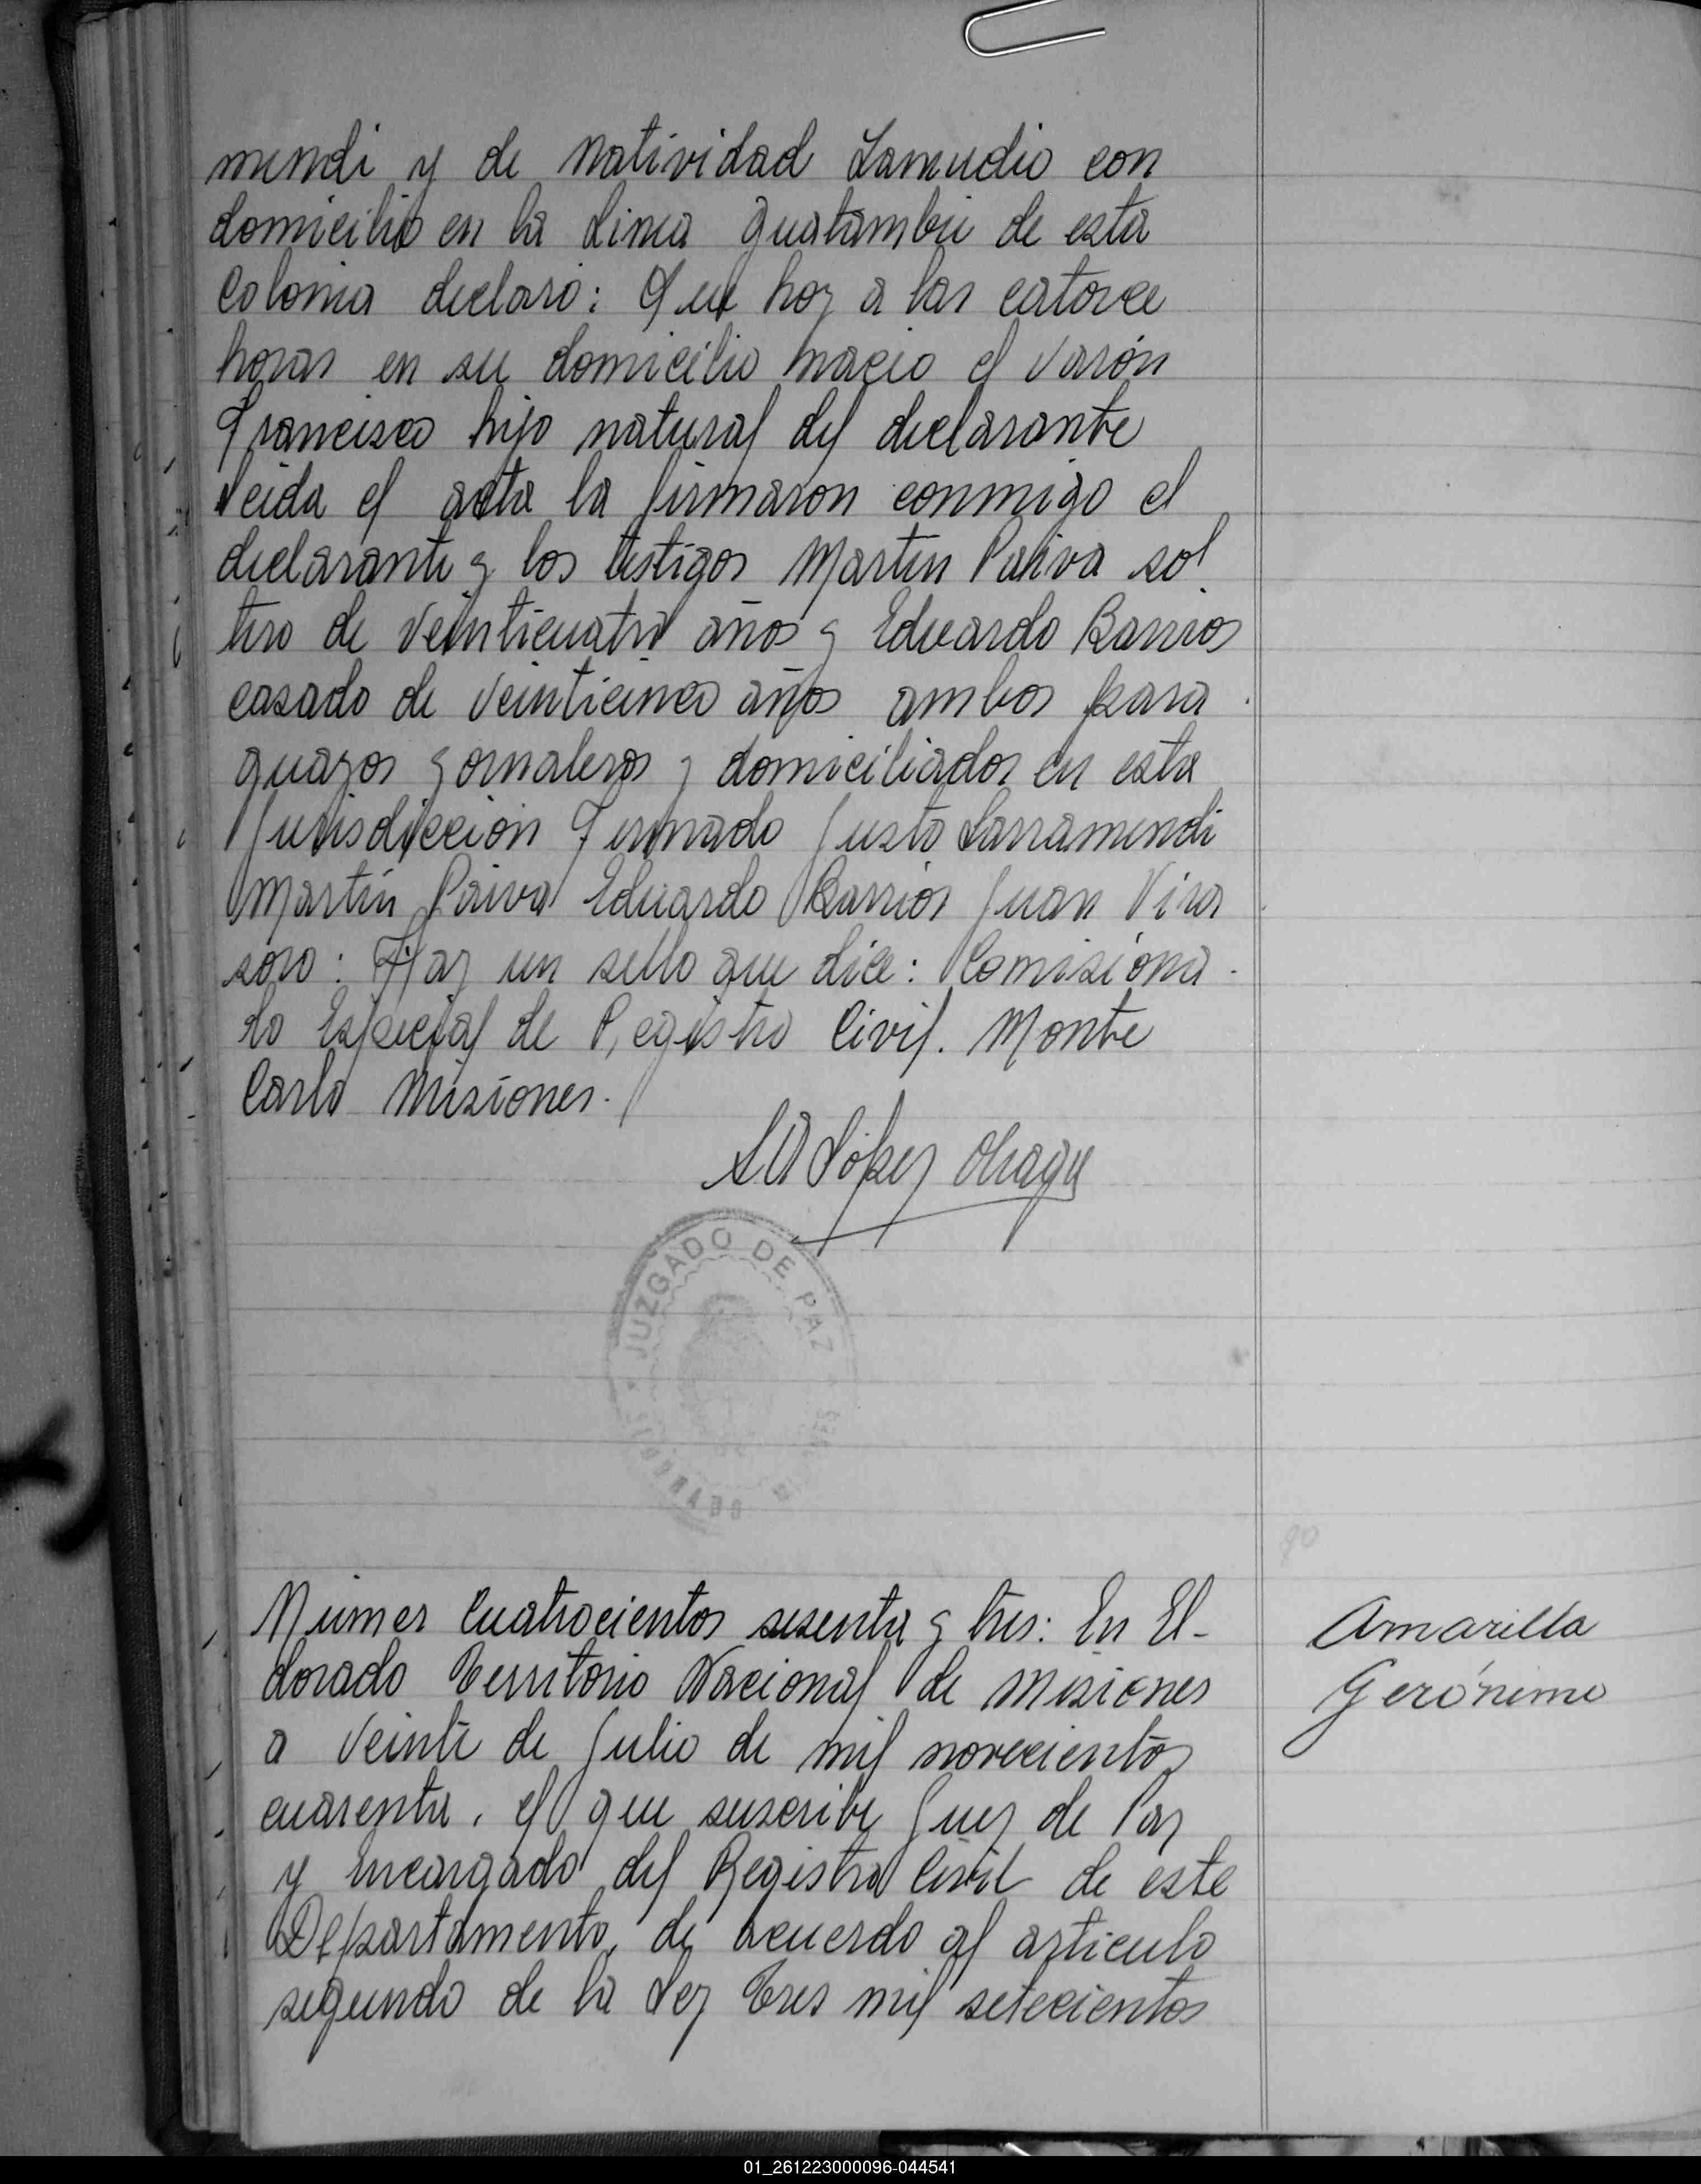 mendi y de Natividad Zamudio con
domicilio en la Linea Guatambú de esta
Colonia declaro: Que hoy a las catorce
horas en su domicilio nacio el varón
Francisco hijo natural del declarante
Leida el acta la firmaron conmigo el
declarante y los testigos Martin Paiva sol
tero de veinticuatro años y Eduardo Barrios
casado de veinticinco años ambos para
guayos jornaleros y domiciliados en esta
Jurisdiccion Firmado Justo Larramendi
Martin Paiva Eduardo Barrios Juan Vira
soro: Hay un sello que dice: Comisiona-
do Especial de Registro Civil. Monte
Carlo Misiones.-
López
JUZGADO DE PAZ
ELDORADO
Númer Cuatrocientos sesenta y tres: En El-
dorado Territorio Nacional de Misiones
a veinte de Julio de mil novecientos
cuarenta. el que suscribe Juez de Paz
y Encargado del Registro Civil de este
Departamento, de acuerdo al articulo
segundo de la Ley tres mil setecientos
Amarilla
Gerónimo
01_261223000096-044541